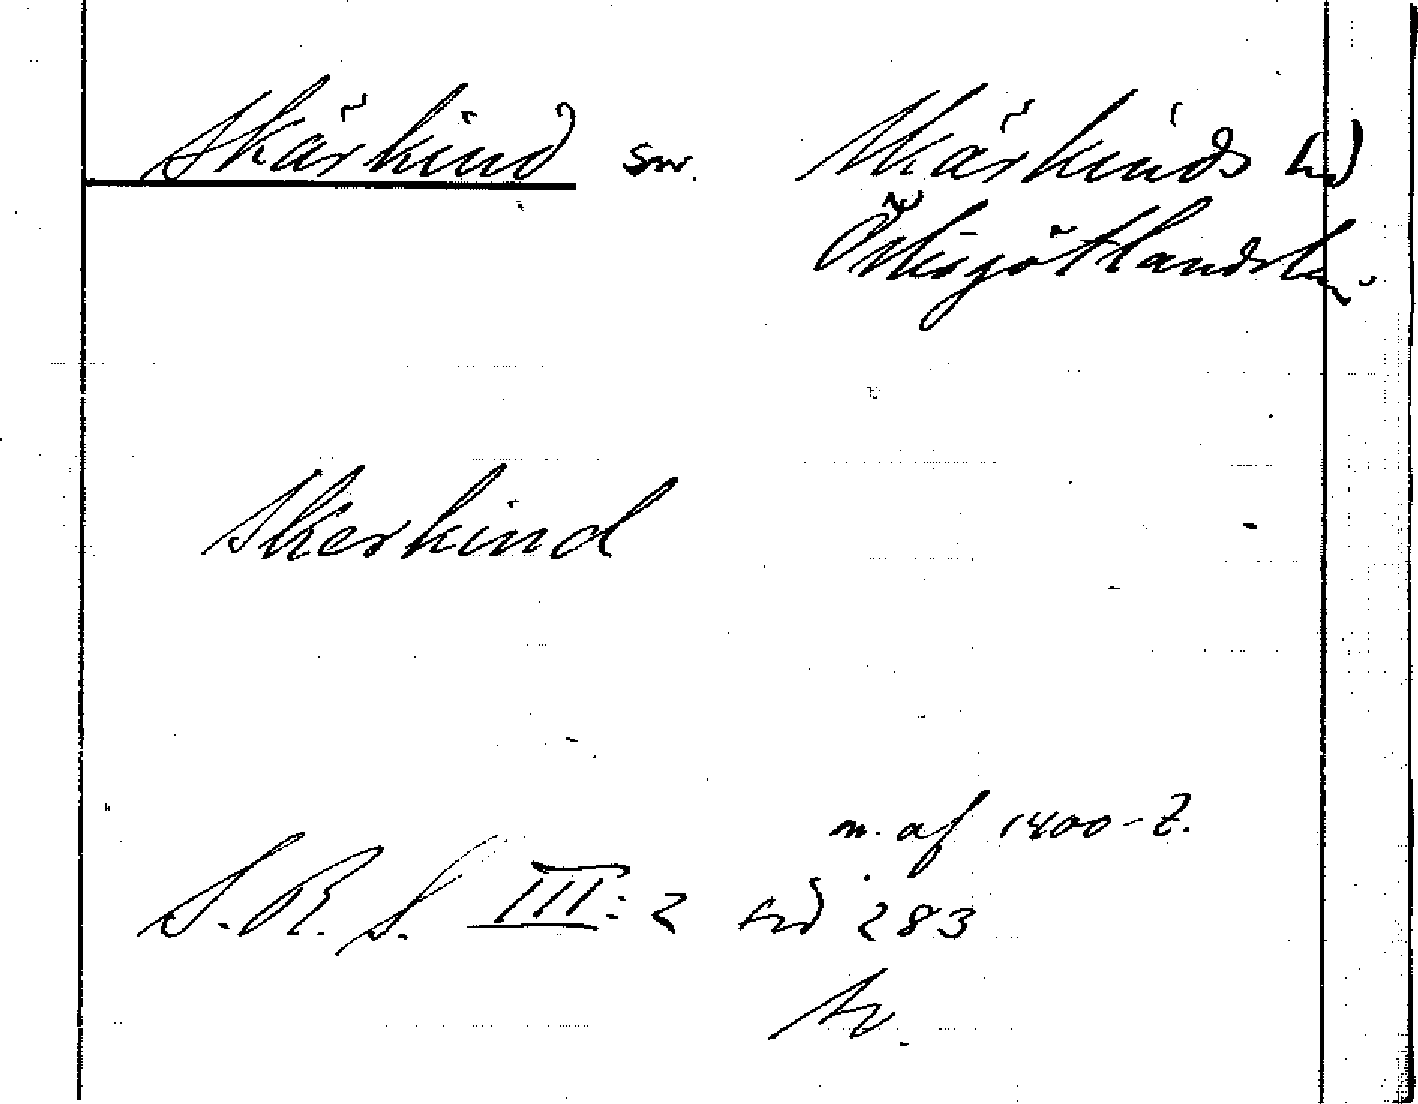 Skärkind sn. Skärkinds hd
Östergötlands län.
Skerkind
m. af 1400-t.
S.R.S. III:2 sid 283
tr.